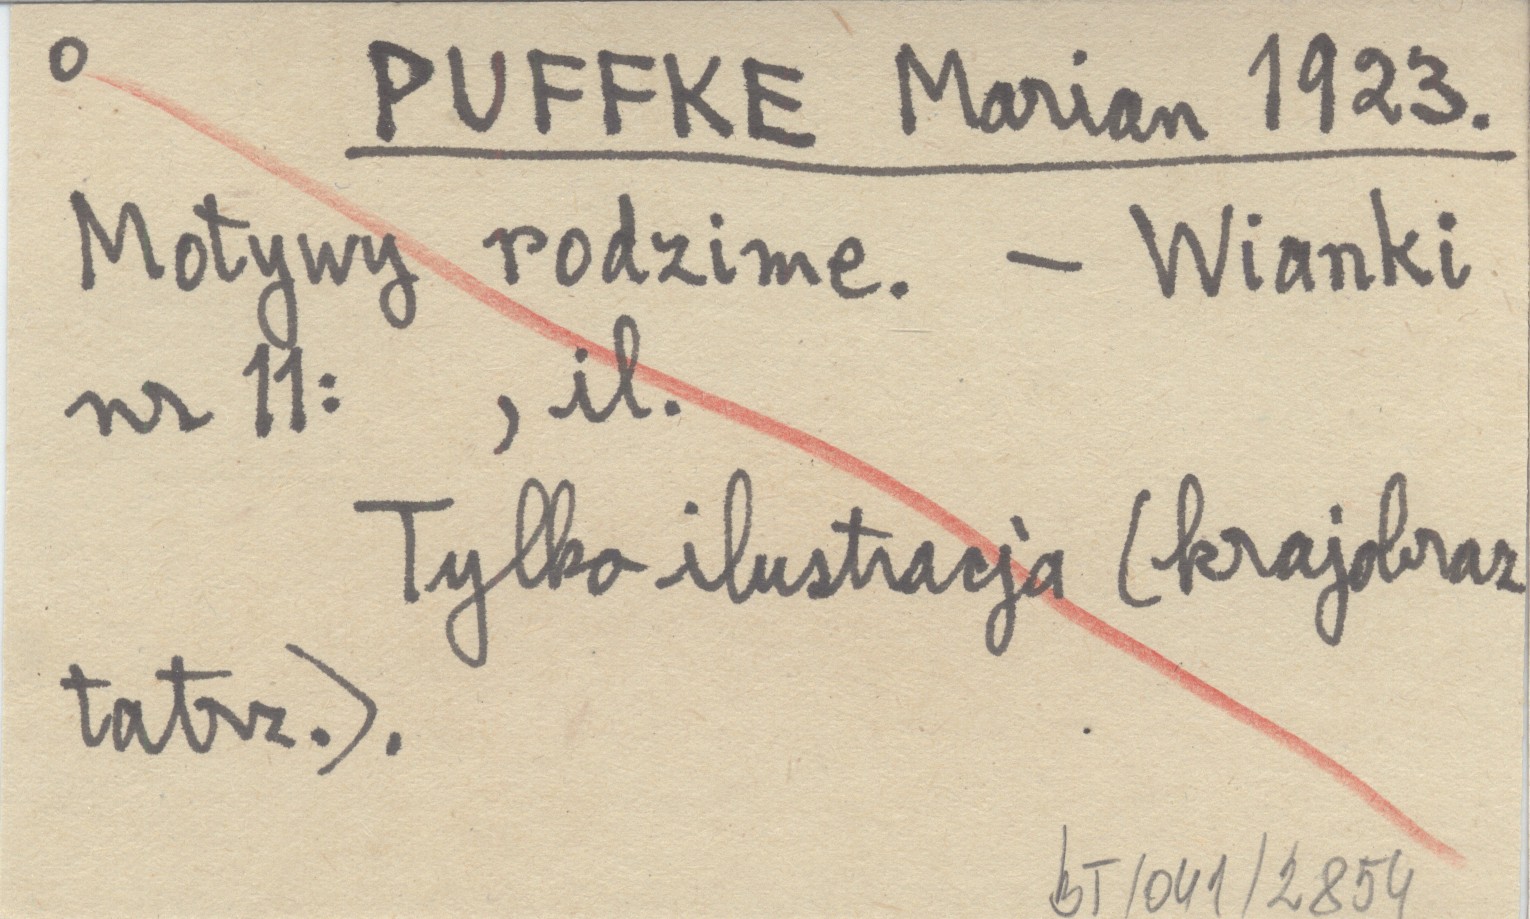 o PUFFKE Marian 1923.
Motywy rodzime. – Wianki
nr 11: , il.
Tylko ilustracja (krajobraz
tatrz.).
BT/041/2854